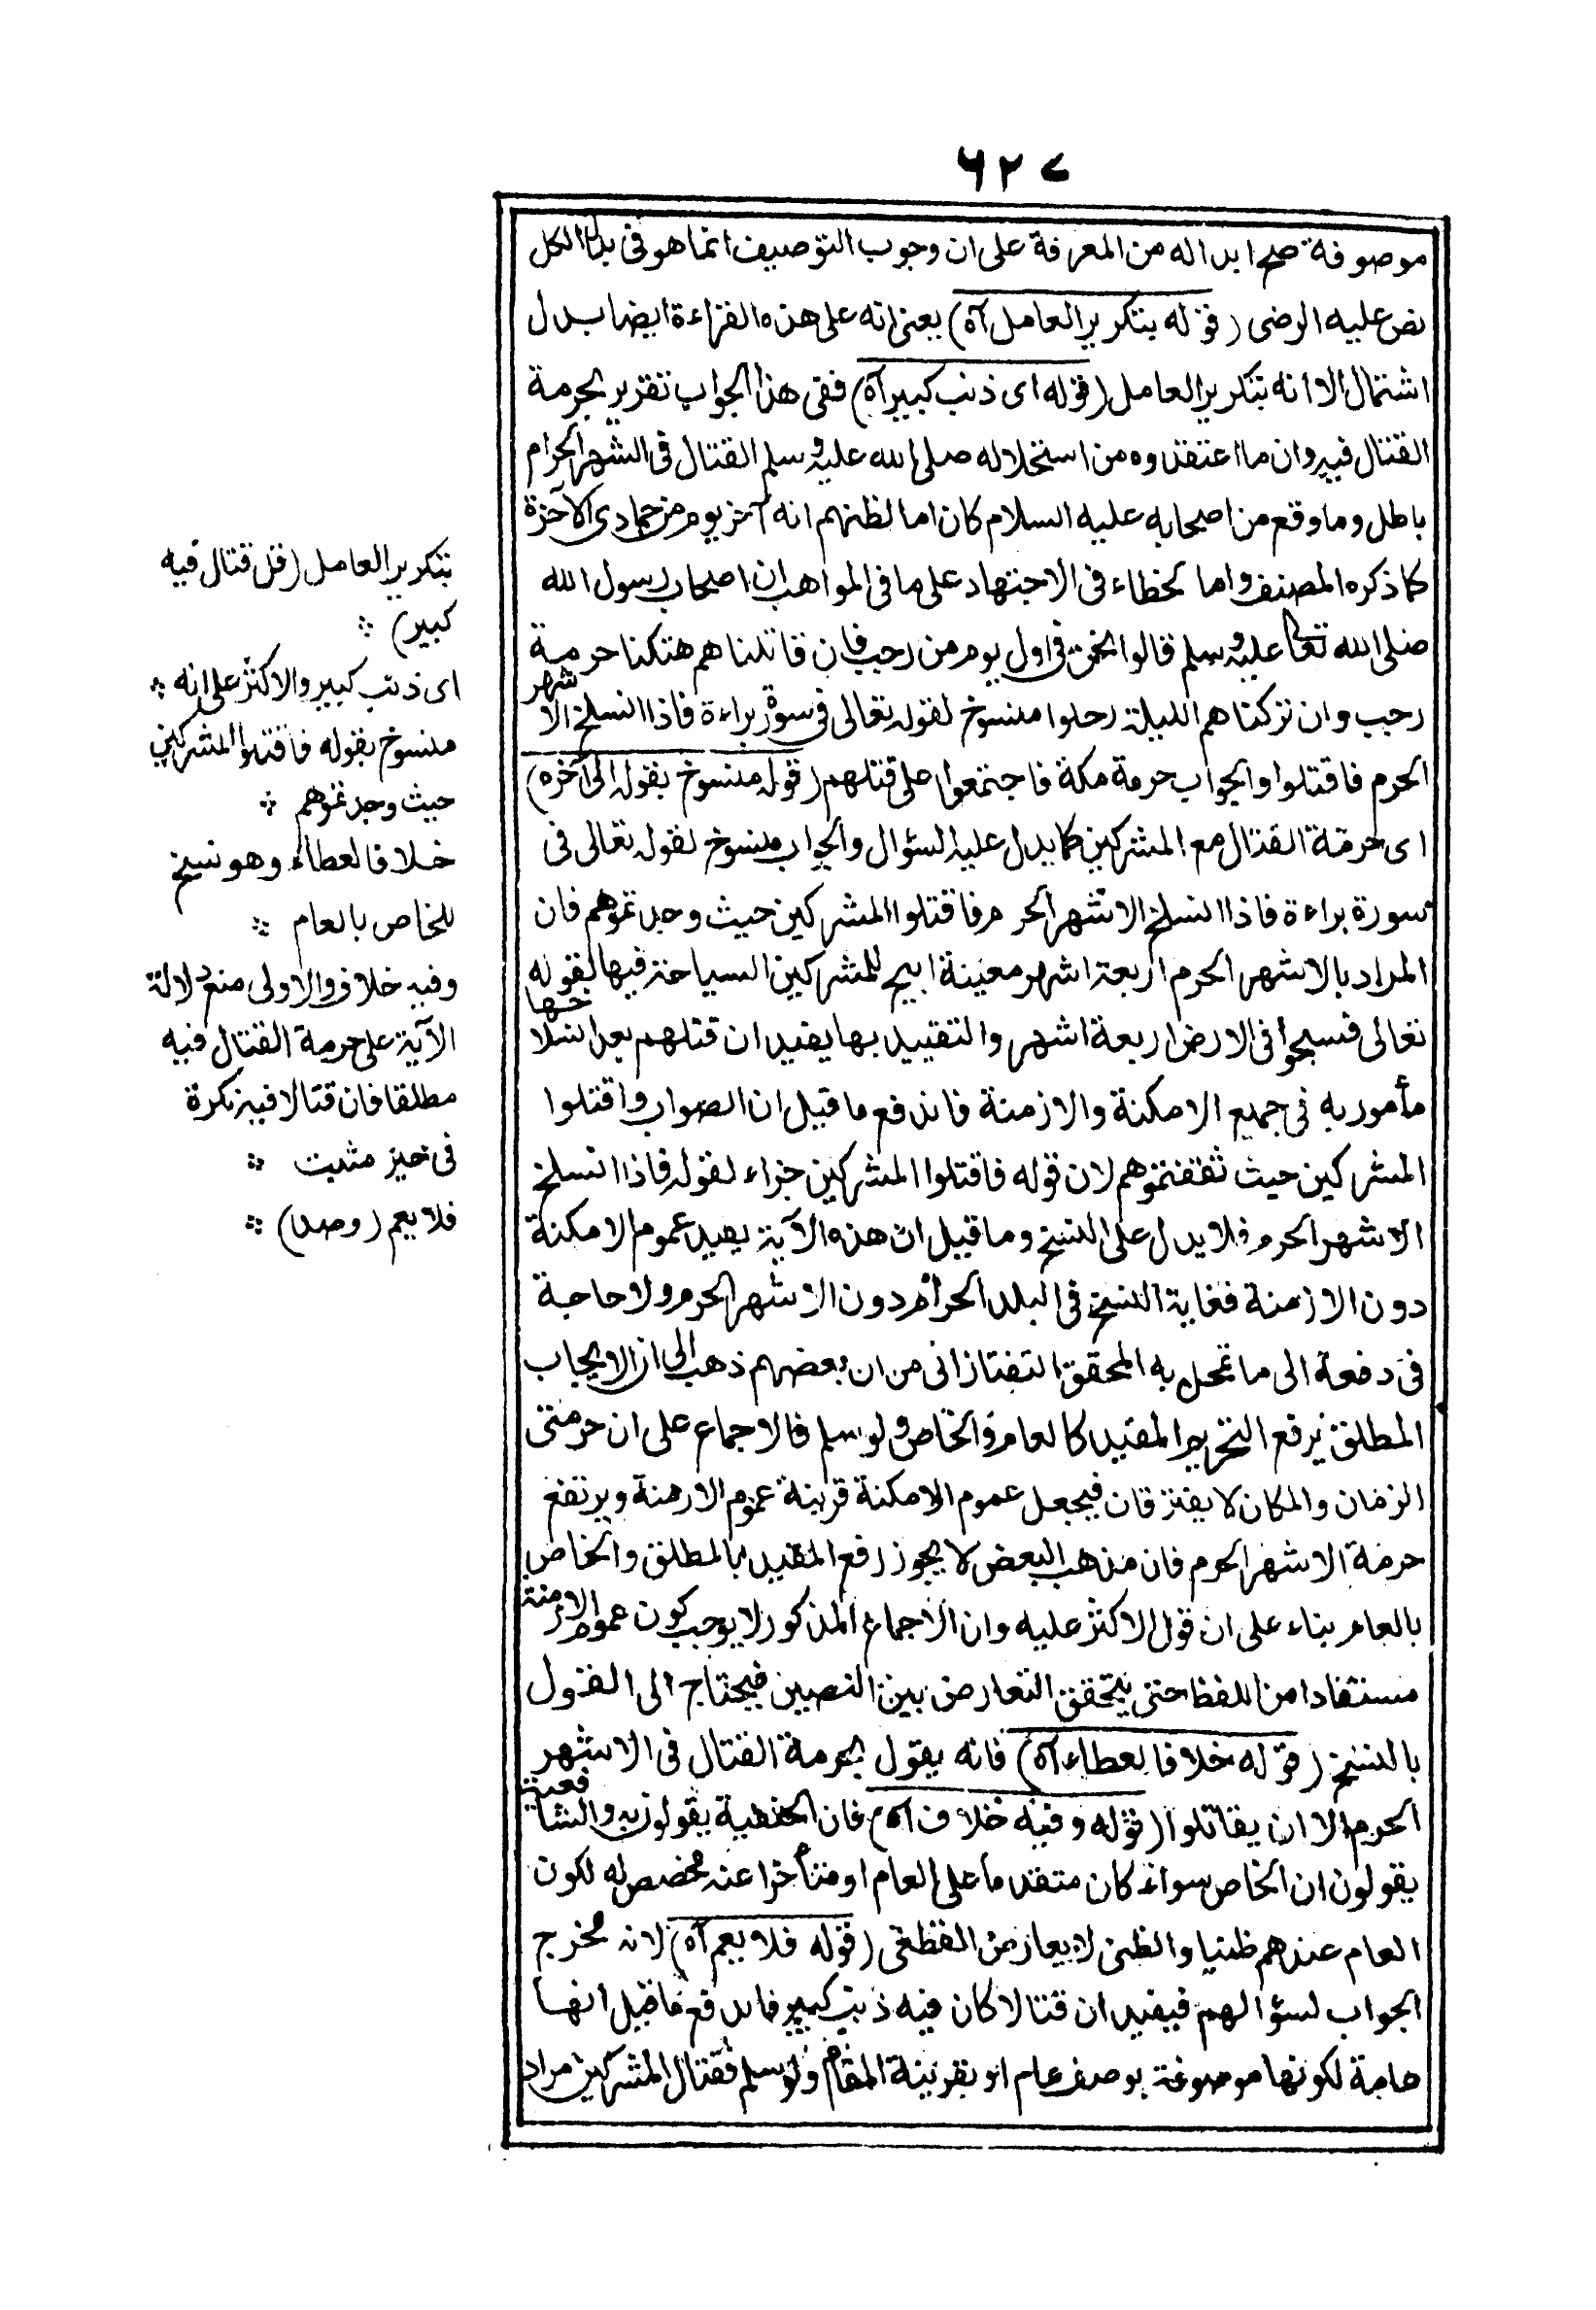 ٦٢٧
موصوفة صح ابداله من المعرفة على ان وجوب التوصيف انما هو فى بدل الكل
نص عليه الرضى (قوله بتكرير العامل آه) يعنى انه على هذه القراءة ايضا بدل
اشتمال الا انه بتكرير العامل (قوله اى ذنب كبير آه) ففى هذا الجواب تقرير لحرمة
القتال فيه وان ما اعتقدوه من استحلاله صلى الله عليه وسلم القتال فى الشهر الحرام
باطل وما وقع من اصحابه عليه السلام كان اما لظنهم انه آخر يوم من جمادى الآخرة
كما ذكره المصنف واما لخطاء فى الاجتهاد على ما فى المواهب ان اصحاب رسول الله
صلى الله تعالى عليه وسلم قالوا نحن فى اول يوم من رجب فان قاتلناهم هتكنا حرمة شهر
رجب وان تركناهم الليلة رحلوا منسوخ لقوله تعالى فى سورة براءة فاذا انسلخ الا
الحرم فاقتلوا والجواب حرمة مكة فاجتمعوا على قتلهم (قوله منسوخ بقوله الى آخره)
اى حرمة القتال مع المشركين كما يدل عليه السؤال والجواب منسوخ لقوله تعالى فى
سورة براءة فاذا انسلخ الاشهر الحرم فاقتلوا المشركين حيث وجدتموهم فان
المراد بالاشهر الحرم اربعة اشهر معينة ابيح للمشركين السياحة فيها لقوله
تعالى فسيحوا فى الارض اربعة اشهر والتقييد بها يفيد ان قتلهم بعد انسلاخها
مأمور به فى جميع الامكنة والازمنة فاندفع ما قيل ان الصواب واقتلوا
المشركين حيث ثقفتموهم لان قوله فاقتلوا المشركين جزاء لقوله فاذا انسلخ
الاشهر الحرم فلا يدل على النسخ وما قيل ان هذه الآية يفيد عموم الامكنة
دون الازمنة فغاية النسخ فى البلد الحرام دون الاشهر الحرم ولا حاجة
فى دفعه الى ما تمحل به المحقق التفتازانى من ان بعضهم ذهب الى ان الايجاب
المطلق يرفع التحريم المقيد كالعام والخاص ولو سلم فالاجماع على ان حرمتى
الزمان والمكان لا يفترقان فيجعل عموم الامكنة قرينة عموم الازمنة ويرتفع
حرمة الاشهر الحرم فان مذهب البعض لا يجوز رفع المقيد بالمطلق والخاص
بالعام بناء على ان قول الاكثر عليه وان الاجماع المذكور لا يوجب كون عموم الازمنة
مستفادا من اللفظ حتى يتحقق التعارض بين النصين فيحتاج الى القول
بالنسخ (قوله خلافا لعطاء آه) فانه يقول بحرمة القتال فى الاشهر
الحرم الا ان يقاتلوا (قوله وفيه خلاف آه) فان الحنفية يقولون به والشافعية
يقولون ان الخاص سواء كان متقدما على العام او متأخرا عنه مخصص له لكون
العام عندهم ظنيا والظنى لا يعارض القطعى (قوله فلا يعم آه) لانه مخرج
الجواب لسؤالهم فيفيد ان قتالا كان فيه ذنب كبير فاندفع ما قيل انها
عامة لكونها موصوفة بوصف عام او بقرينة المقام ولو سلم فقتال المشركين مراد
بتكرير العامل (قل قتال فيه
كبير)
اى ذنب كبير والاكثر على انه
منسوخ بقوله فاقتلوا المشركين
حيث وجدتموهم
خلافا لعطاء وهو نسخ
للخاص بالعام
وفيه خلاف والاولى منع دلالة
الآية على حرمة القتال فيه
مطلقا فان قتالا فيه نكرة
فى حيز مثبت
فلا يعم (وصد)